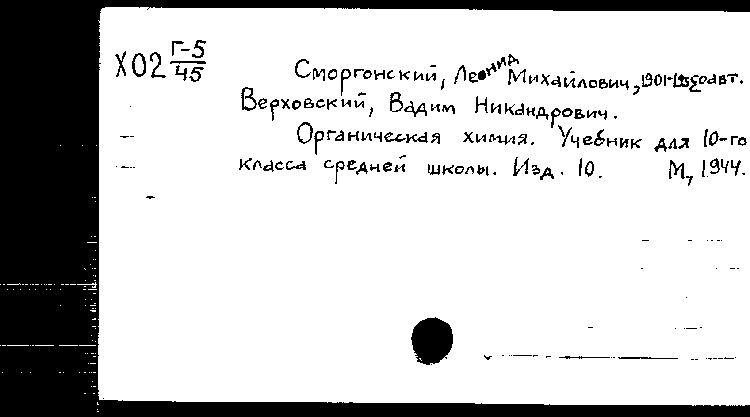 Х02 Г-5
45
Сморгонский, Леонид Михайлович, 1901- соавт.
Верховский, Вадим Никандрович.
Органическая химия. Учебник для 10-го
класса средней школы. Изд. 10. М, 1944.